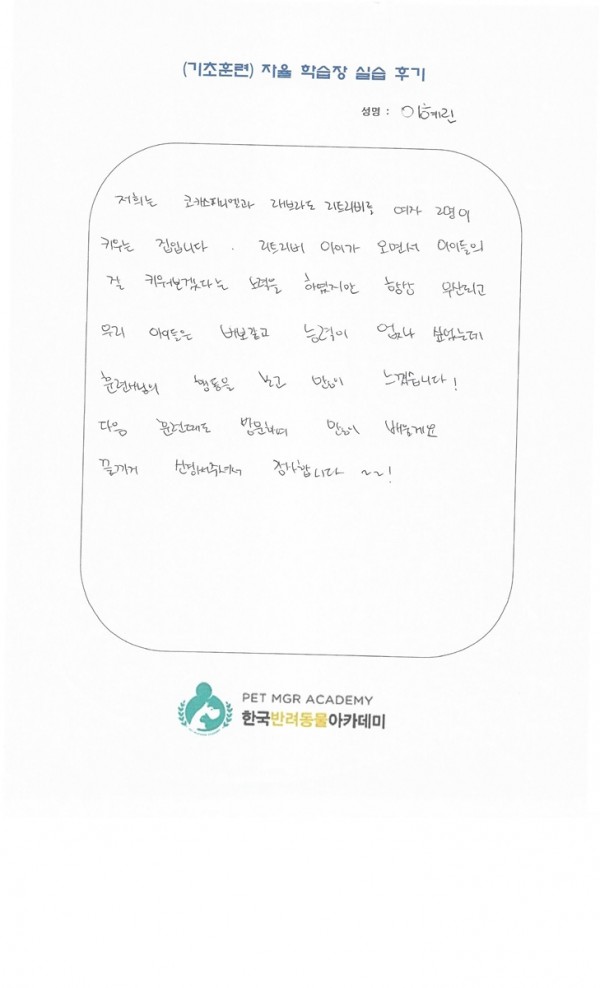 (기초훈련) 자율 학습장 실습 후기
성명 : 이혜린
저희는 코카스파니엘과 래브라도 리트리버를 여자 2명이
키우는 집입니다 . 리트리버 아이가 오면서 아이들의
잘 키워보겠다는 노력을 하였지만 항상 무산되고
우리 아이들은 바보같고 능력이 없나 싶었는데
훈련사님의 행동을 보고 많이 느꼈습니다!
다음 훈련때도 방문하여 많이 배울게요
즐겁게 설명해주셔서 감사합니다 ~~!
PET MGR ACADEMY
한국반려동물아카데미